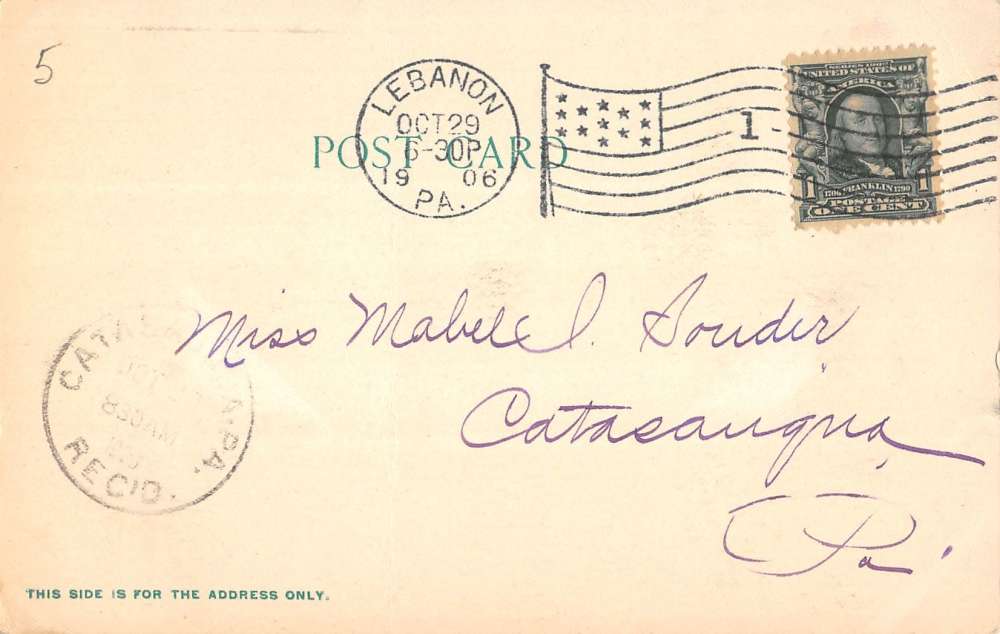 5
LEBANON
OCT 29
6-30P
19 06
PA.
POST CARD
1
SERIES 1902
UNITED STATES OF
AMERICA
1 1706 FRANKLIN 1790 1
POSTAGE
ONE CENT
Miss Mabel I. Souder
Catasauqua,
Pa.
PA.
830AM
REC'D.
THIS SIDE IS FOR THE ADDRESS ONLY.